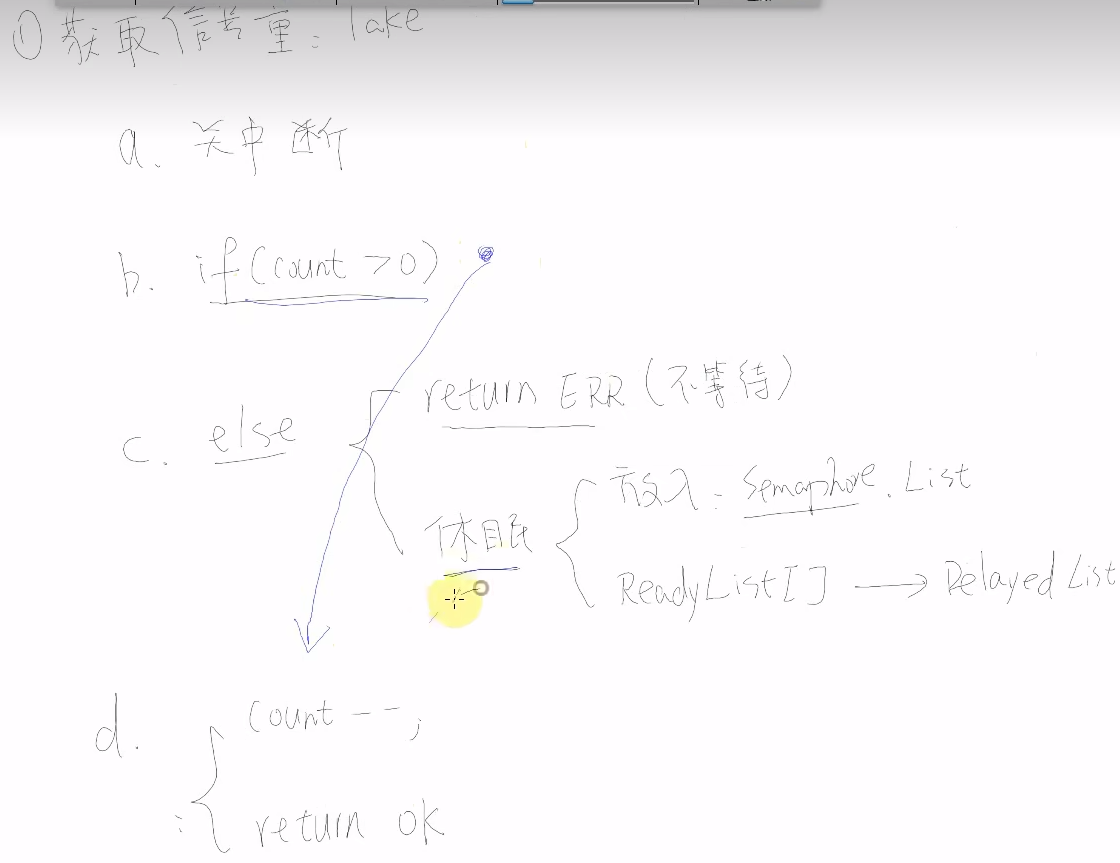 ① 获取信号量: Take
a. 关中断
b. if(count >0)
return ERR (不等待)
c. else
放入: Semaphore. List
休眠
ReadyList[] → Delayed List
d. Count --;
return ok